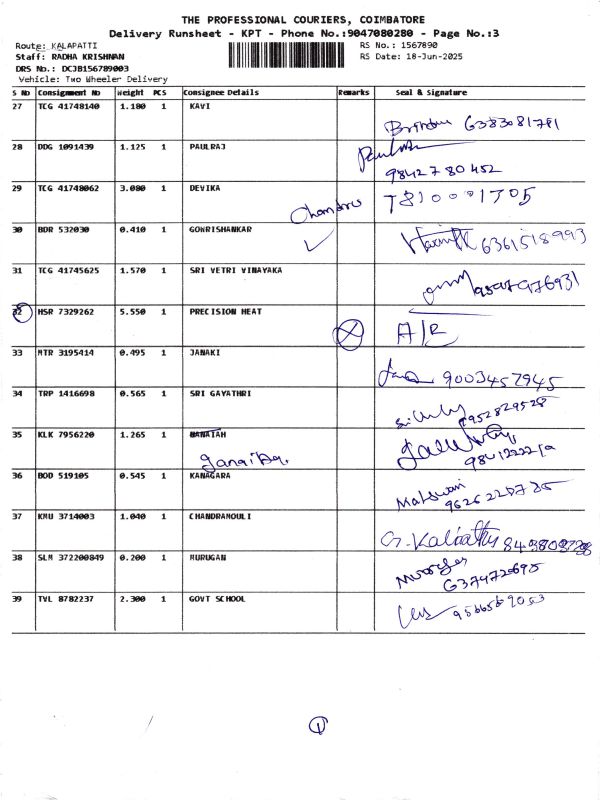 THE PROFESSIONAL COURIERS, COIMBATORE
Delivery Runsheet - KPT - Phone No.:9047080280 - Page No.:3
Route: KALAPATTI
RS No.: 1567890
Staff: RADHA KRISHNAN
RS Date: 18-Jun-2025
DRS No.: DCJB156789003
Vehicle: Two Wheeler Delivery
S No Consignment No Weight PCS Consignee Details Remarks Seal & Signature
27 TCG 41748140 1.180 1 KAVI
6383081781
28 DDG 1091439 1.125 1 PAULRAJ
9842780452
29 TCG 41748062 3.080 1 DEVIKA
Chandru
30 BDR 532030 0.410 1 GOWRISHANKAR
6361518993
31 TCG 41745625 1.570 1 SRI VETRI VINAYAKA
32 HSR 7329262 5.550 1 PRECISION HEAT
A/R
33 MTR 3195414 0.495 1 JANAKI
9003457945
34 TRP 1416698 0.565 1 SRI GAYATHRI
9952829528
35 KLK 7956220 1.265 1
36 BOD 519105 0.545 1 KANAGARA
37 KMU 3714003 1.040 1 CHANDRAMOULI
38 SLM 372200849 0.200 1 MURUGAN
39 TVL 8782237 2.300 1 GOVT SCHOOL
1